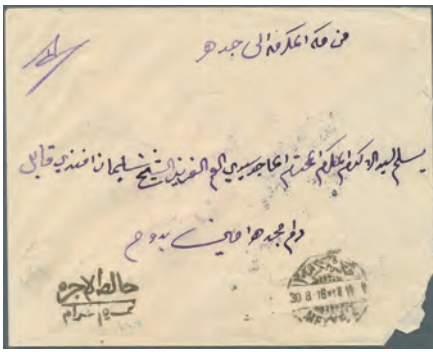 من مكة المكرمة الى جده
يسلم ليد الاكرم المكرم المحترم الماجد سيدي العم العزيز الشيخ سليمان افندي قابل
دام مجده امين بدوح
خالص الاجره
30 8 18